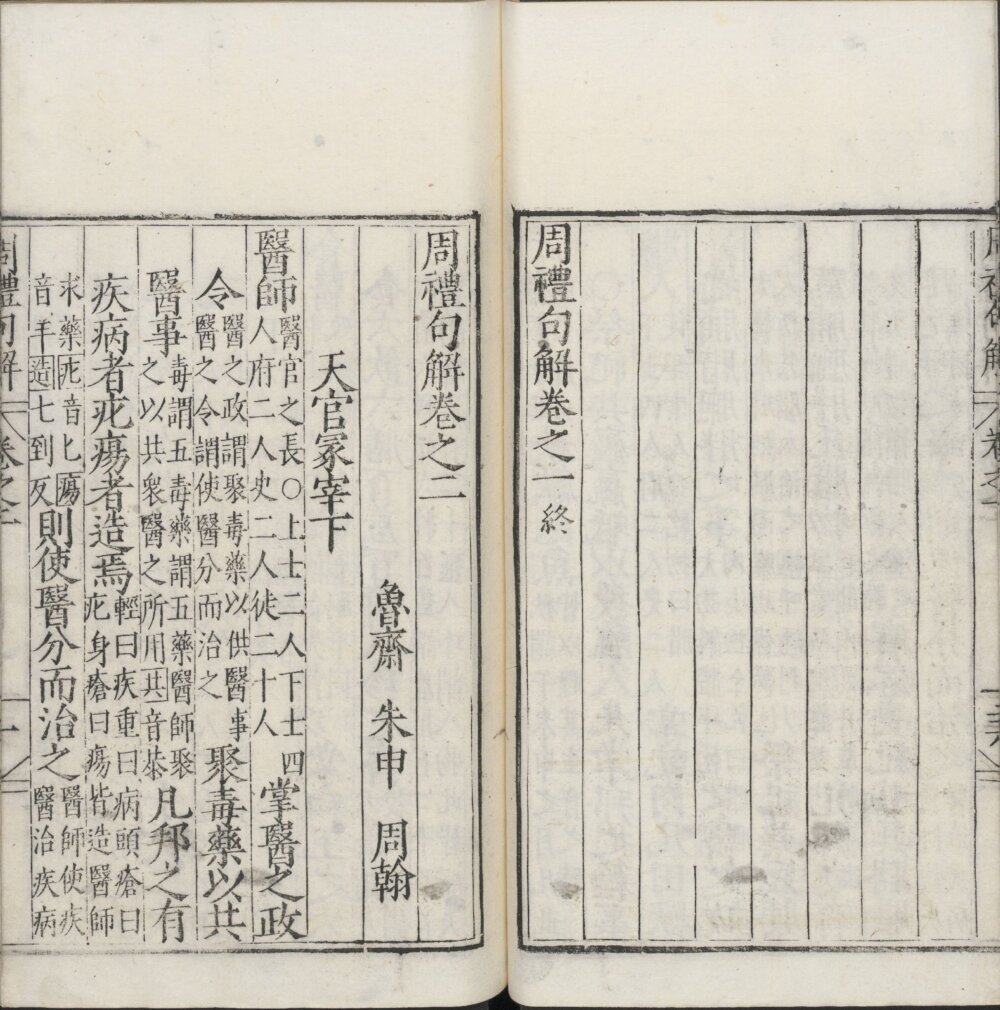 周禮句解 卷之一
周禮句解卷之一 終
周禮句解卷之二
魯齋 朱申 周翰
天官冢宰下
醫師醫官之長○上士二人下士四人府二人史二人徒二十人掌醫之政
令醫之政謂聚毒藥以供醫事醫之令謂使醫分而治之聚毒藥以共
醫事毒謂五毒藥謂五藥醫師聚之以共衆醫之所用共音恭凡邦之有
疾病者疕瘍者造焉輕曰疾重曰病頭瘡曰疕身瘡曰瘍皆造醫師
求藥疕音匕瘍音羊造七到反則使醫分而治之醫師使疾醫治疾病
周禮句解 卷之二 一